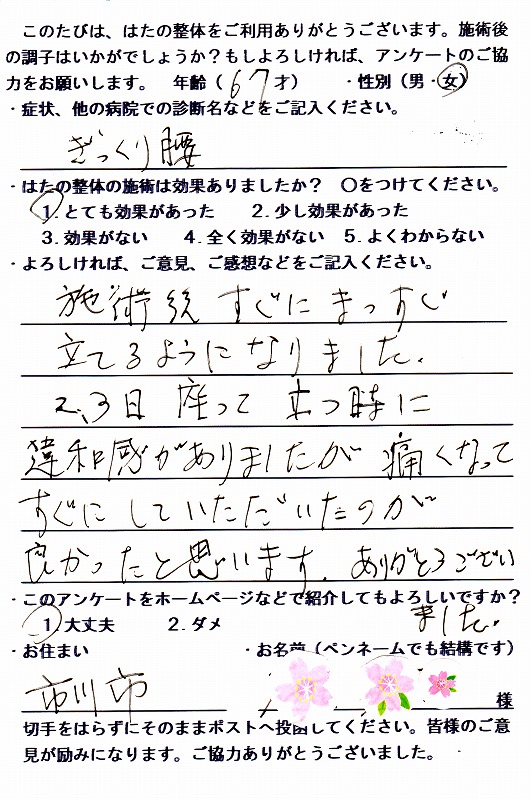 このたびは、はたの整体をご利用ありがとうございます。施術後
の調子はいかがでしょうか？もしよろしければ、アンケートのご協
力をお願いします。　年齢（67才）　・性別（男・女）
・症状、他の病院での診断名などをご記入ください。
ぎっくり腰
・はたの整体の施術は効果ありましたか？　〇をつけてください。
1.とても効果があった　2.少し効果があった
3.効果がない　4.全く効果がない　5.よくわからない
・よろしければ、ご意見、ご感想などをご記入ください。
施術後 すぐに まっすぐ
立てるようになりました。
2、3日 座って 立つ時に
違和感がありましたが 痛くなって
すぐに していただいたのが
良かったと思います。ありがとうござい
・このアンケートをホームページなどで紹介してもよろしいですか？
ました。
1.大丈夫　2.ダメ
・お住まい　・お名前（ペンネームでも結構です）
市川市　様
切手をはらずにそのままポストへ投函してください。皆様のご意
見が励みになります。ご協力ありがとうございました。